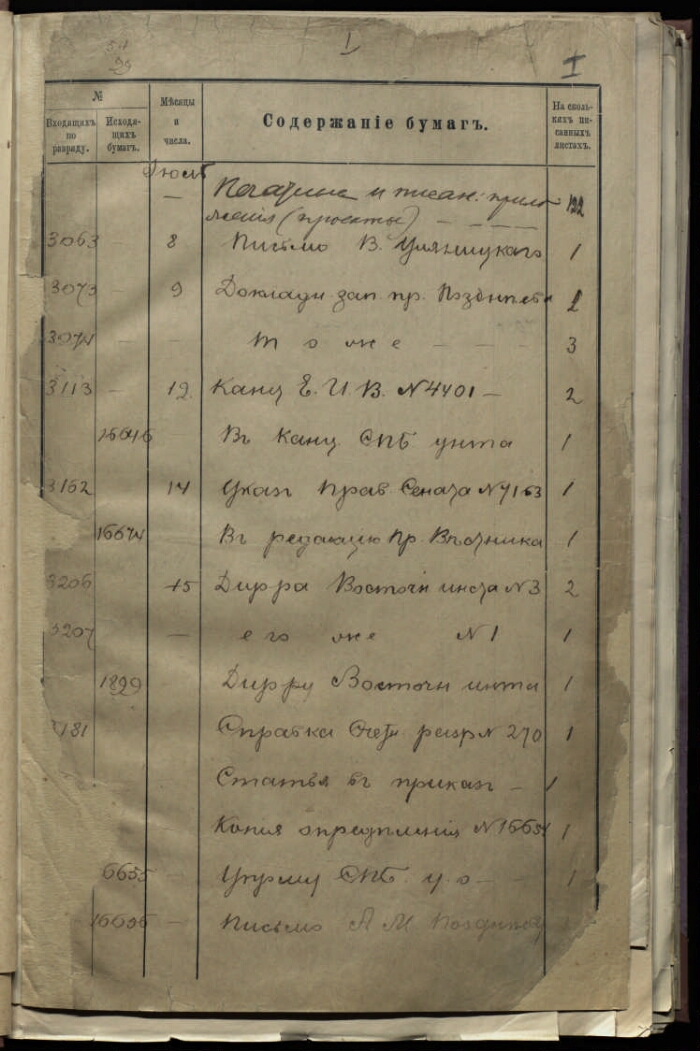 54
99
I
I
№
Входящихъ по разряду.
Исходящихъ бумагъ.
Мѣсяцы и числа.
Содержаніе бумагъ.
На сколькихъ писанныхъ листахъ.
Іюль
— Печатные и писан: прило 122
женія (проекты) — — —
3063 8 Письмо В. Уляницкаго 1
3073 — 9 Докладн. зап. пр. Позднѣева 1
3074 — — То же — — — 3
3113 — 12 Канц. Е. И. В. N 4401 — 2
16646 Въ Канц. СПБ унта 1
3162 14 Указъ Прав. Сената N 7163 1
16674 Въ редакцію Пр. Вѣстника 1
3206 15 Дирра Восточн инста N 3 2
3207 — его же N 1 1
1899 Дирру Восточн инта 1
181 Справка Счетн. разр N 270 1
Статья въ приказъ — 1
Копія опредѣленія N 16654 1
6655 Упрму СПб. у. о — — 1
16656 — Письмо А М Позднѣеву